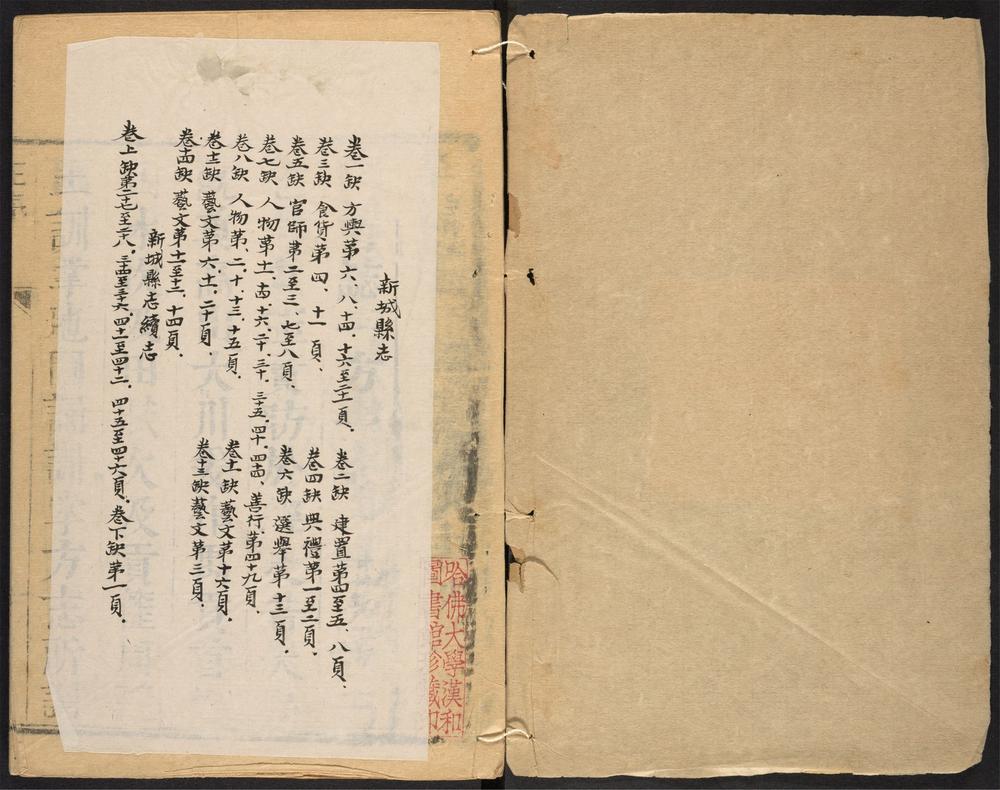 新城縣志
卷一缺 方輿第六、八、十四、十六至二十一頁、 卷二缺 建置第四至五、八頁、
卷三缺 食貨第四、十一頁、 卷四缺 典禮第一至二頁、
卷五缺 官師第二至三、七至八頁、 卷六缺 選舉第十三頁、
卷七缺 人物第十一、十四、十六、二十、三十、三十五、四十、四十四、善行、第四十九頁、
卷八缺 人物第、二、十、十三、十五頁、 卷十一缺 藝文第十六頁、
卷十二缺 藝文第六、十一、二十頁、 卷十三缺 藝文第三頁、
卷十四缺 藝文第十一至十二、十四頁、
新城縣志續志
卷上缺第二十七至二十八、三十四至三十六、四十一至四十二、四十五至四十六頁、卷下缺第一頁、
哈佛大學漢和
圖書館珍藏印